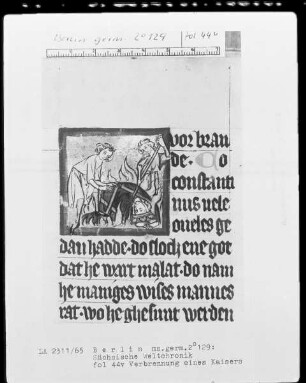 Berlin germ. 2° 129 fol 44v
vorbran
de. Do
constanti
nus uele
oueles ge
dan hadde. do sloch ene got
dat he wart malat. do nam
he maniges wises mannes
rat. wo he ghesunt werden
Ld 2311/65 Berlin ms.germ.2°129:
Sächsische Weltchronik
fol 44v Verbrennung eines Kaisers